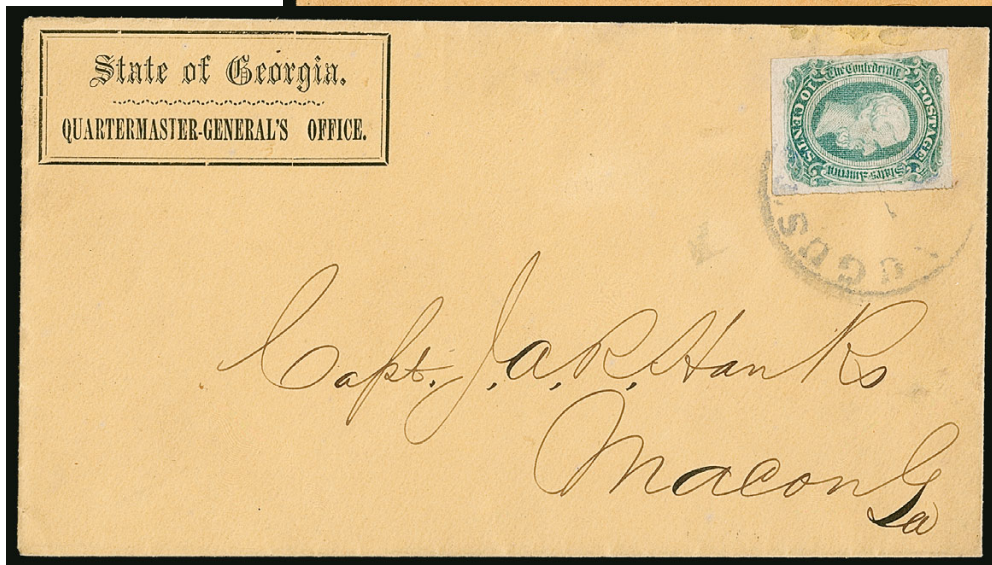 State of Georgia.
QUARTERMASTER-GENERAL'S OFFICE.
The Confederate
States of America
POSTAGE
10 CENTS
UGUS
Capt. J. A. R. Hanks
Macon Ga